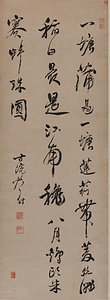 一塘蒲過一塘蓮荇葉菱絲滿
稻田最是江南穐八月雞頭米
賽蚌珠圓